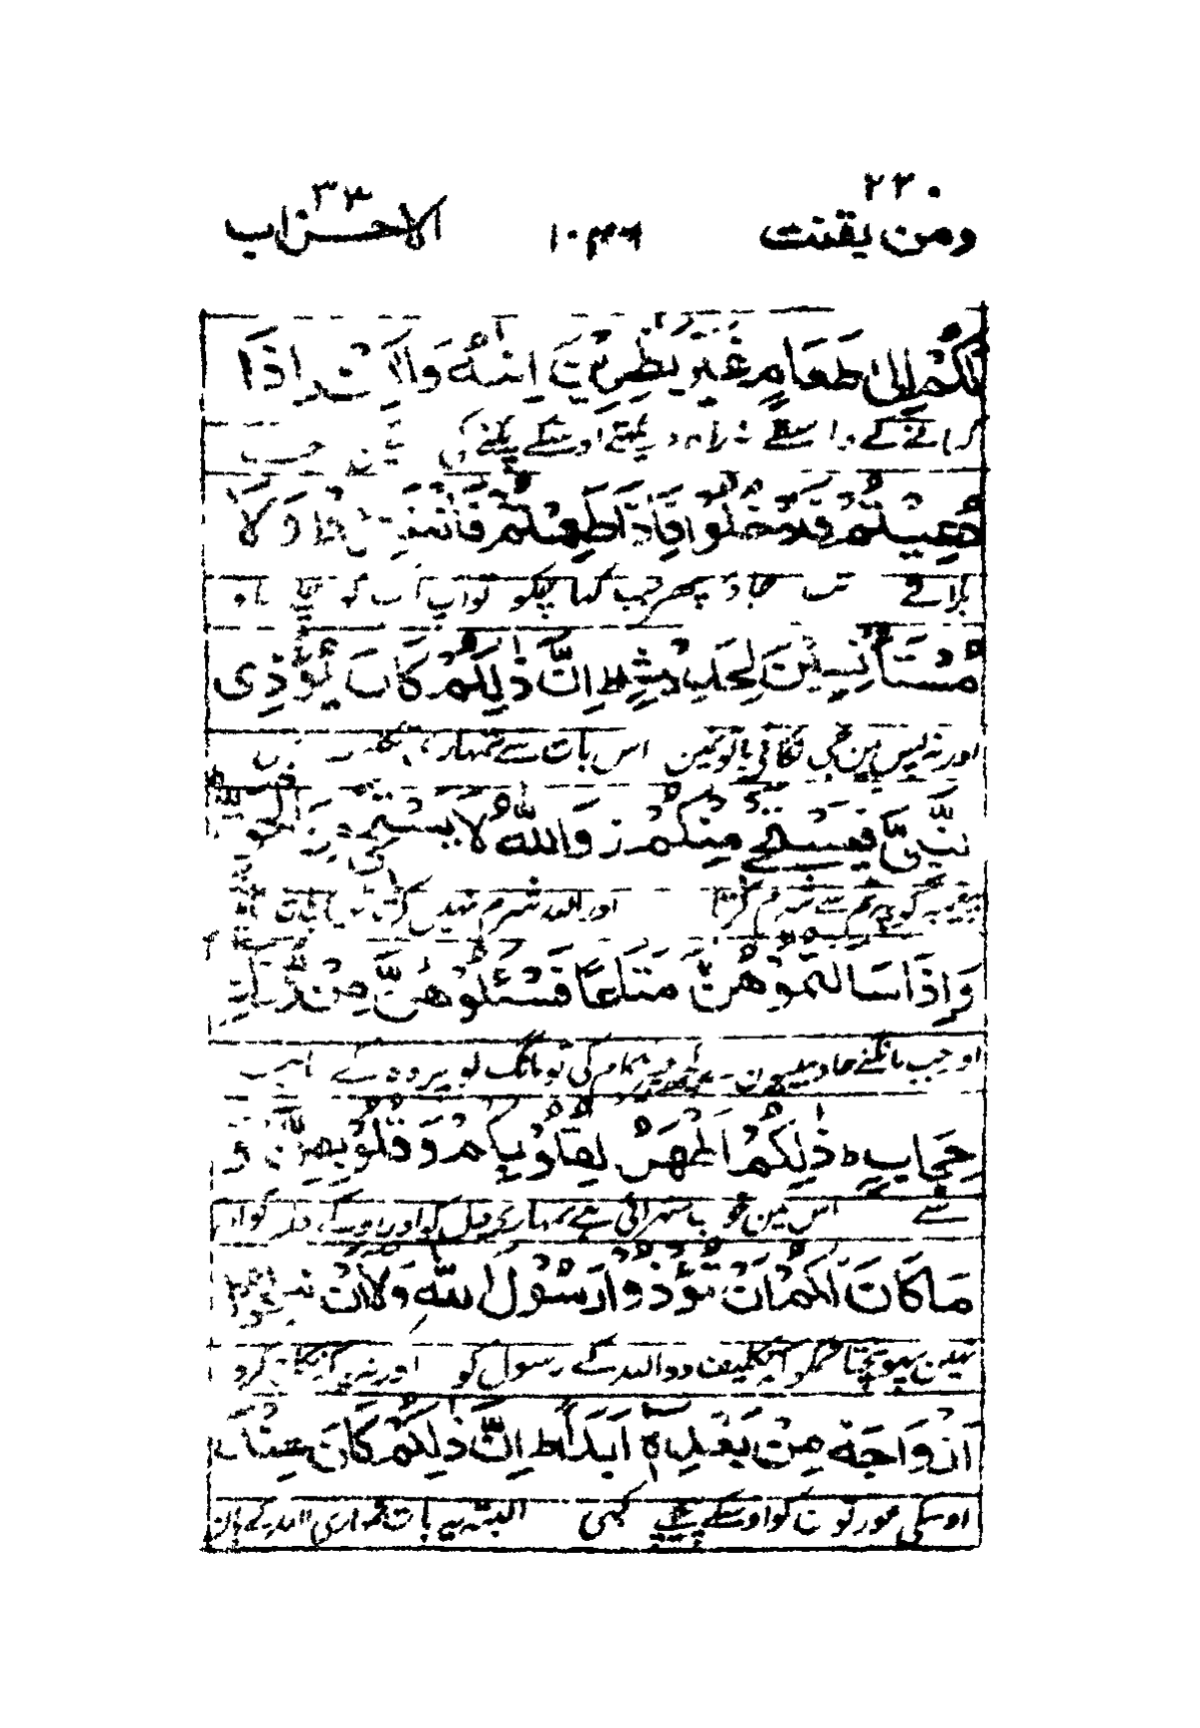 ٢٢٠
ومن يقنت ١٠٣٦ الاحزاب ٣٣
لَكُمْ اِلٰى طَعَامٍ غَيْرَ نٰظِرِيْنَ اِنٰىهُ وَلٰكِنْ اِذَا
کے واسطے نہ راہ دیکھتے اوسکے پکنے کی جب
دُعِيْتُمْ فَادْخُلُوْا فَاِذَا طَعِمْتُمْ فَانْتَشِرُوْا وَلَا
بلائے تب جاؤ پھر جب کہا چکو تو آپ آپ کو چلے جاؤ
مُسْتَاْنِسِيْنَ لِحَدِيْثٍ ط اِنَّ ذٰلِكُمْ كَانَ يُؤْذِى
اور نہ آپس مین جی لگاتی باتونمین اس بات سے تمہاری
النَّبِىَّ فَيَسْتَحْيٖ مِنْكُمْ ز وَاللّٰهُ لَا يَسْتَحْيٖ مِنَ الْحَقِّ
پیغمبر کو پھر تم سے شرم کرتا اور اللہ شرم نہیں کرتا بات
وَاِذَا سَاَلْتُمُوْهُنَّ مَتَاعًا فَسْئَلُوْهُنَّ مِنْ وَّرَآءِ
اور جب مانگنے جاؤ بیبیون سے کچھ چیز کام کی تو مانگ لو پردہ کے باہر
حِجَابٍ ط ذٰلِكُمْ اَطْهَرُ لِقُلُوْبِكُمْ وَقُلُوْبِهِنَّ وَ
سے اس مین خوب ستھرائی ہے تمہارے دل کو اور اونکے دل کو اور
مَا كَانَ لَكُمْ اَنْ تُؤْذُوْا رَسُوْلَ اللّٰهِ وَلَا اَنْ تَنْكِحُوْا
نہین پہونچتا تمکو کہ تکلیف دو اللہ کے رسول کو اور نہ یہ کہ نکاح کرو
اَزْوَاجَهٗ مِنْ بَعْدِهٖٓ اَبَدًا ط اِنَّ ذٰلِكُمْ كَانَ عِنْدَ
اوسکی عورتون کو اوسکے پیچھے کبھی البتہ یہ بات تمہاری اللہ کے ہان